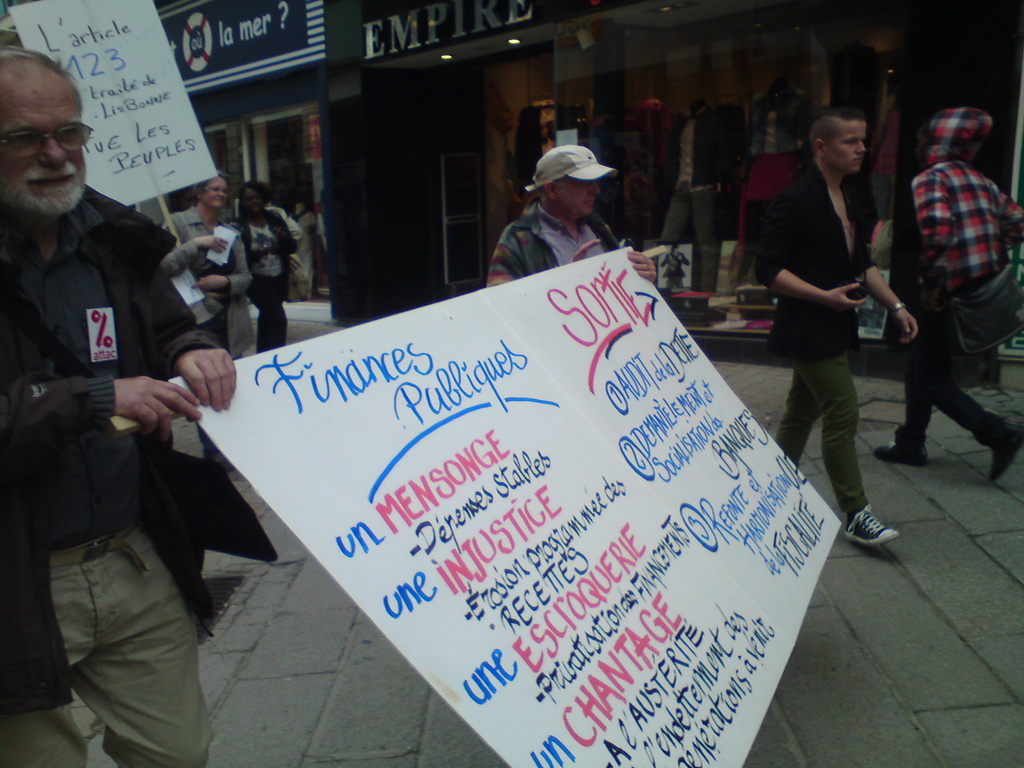 L'article
123
traité de
LISBONNE
TUE LES
PEUPLES
où la mer ?
EMPIRE
%
attac
Finances
Publiques
un MENSONGE
- Dépenses stables
une INJUSTICE
- Érosion programmée des
RECETTES
une ESCROQUERIE
- Privatisation des Financements
un CHANTAGE
- A l'AUSTERITÉ
l'endettement des
générations à venir
SORTIE →
① AUDIT de la DETTE
② DEMANTÈLEMENT et
Socialisation des
BANQUES
③ Refonte et
HARMONISATION DE
de la FISCALITÉ